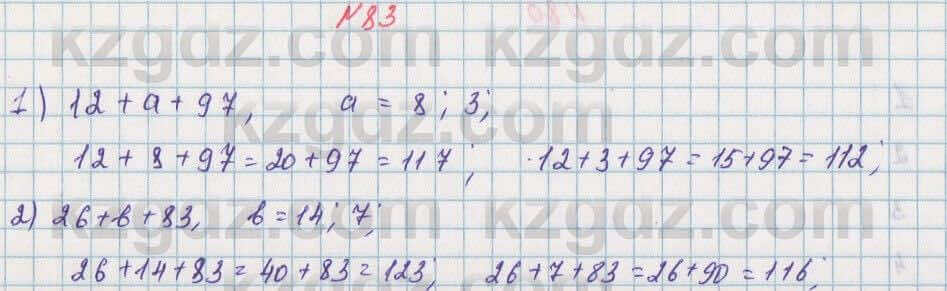 №83
kzgdz.com
1) 12 + a + 97, a = 8; 3;
kzgdz.com
12 + 8 + 97 = 20 + 97 = 117; 12 + 3 + 97 = 15 + 97 = 112;
2) 26 + b + 83, b = 14; 7;
kzgdz.com
26 + 14 + 83 = 40 + 83 = 123; 26 + 7 + 83 = 26 + 90 = 116;